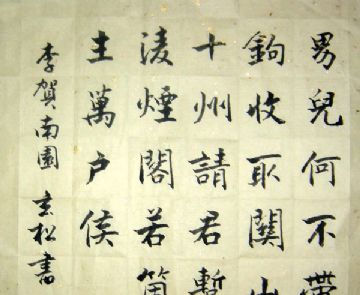 男兒何不帶
鉤收取關山
十州請君暫
淩煙閣若箇
主萬户侯
李賀南園 玄松書